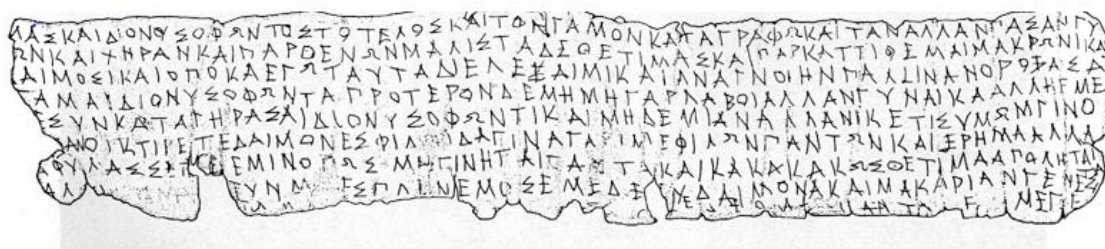 ΜΑΣΚΑΙΔΙΟΝΥΣΟΦΩΝΤΟΣΤΟΤΕΛΟΣΚΑΙΤΟΝΓΑΜΟΝΚΑΤΑΓΡΑΦΩΚΑΙΤΑΝΑΛΛΑΝΠΑΣΑΝΓΥ
ΩΝΚΑΙΧΗΡΑΝΚΑΙΠΑΡΘΕΝΩΝΜΑΛΙΣΤΑΔΕΘΕΤΙΜΑΣΚΑΙΠΑΡΚΑΤΤΙΘΕΜΑΙΜΑΚΡΩΝΙΚΑ
ΑΙΜΟΣΙΚΑΙΟΠΟΚΑΕΓΩΤΑΥΤΑΔΙΕΛΕΞΑΙΜΙΚΑΙΑΝΑΓΝΟΙΗΝΠΑΛΙΝΑΝΟΡΟΞΑΣΑ
ΓΑΜΑΙΔΙΟΝΥΣΟΦΩΝΤΑΠΡΟΤΕΡΟΝΔΕΜΗΜΗΓΑΡΛΑΒΟΙΑΛΛΑΝΓΥΝΑΙΚΑΑΛΛΗΕΜΕ
ΕΣΥΝΚΑΤΑΓΗΡΑΣΑΙΔΙΟΝΥΣΟΦΩΝΤΙΚΑΙΜΗΔΕΜΙΑΝΑΛΛΑΝΙΚΕΤΙΣΥΜΩΜΓΙΝΟ
ΑΝΟΙΚΤΙΡΕΤΕΔΑΙΜΟΝΕΣΦΙΛ ΔΑΓΙΝΑΓΑΡΙΜΕΦΙΛΩΝΠΑΝΤΩΝΚΑΙΕΡΗΜΑΑΛΛΑ
ΑΦΥΛΑΣΣΕΤΕΕΜΙΝΟΠΩΣΜΗΓΙΝΗΤΑΙΤΑ ΤΑΚΑΙΚΑΚΑΚΑΚΩΣΘΕΤΙΜΑΑΠΟΛΗΤΑΙ
ΑΛ ΕΥΝΜ ΕΣΠΛΙΝΕΜΟΣΕΜΕΔΕΕΥΔΑΙΜΟΝΑΚΑΙΜΑΚΑΡΙΑΝΓΕΝΕΣ
ΜΕΓΕ